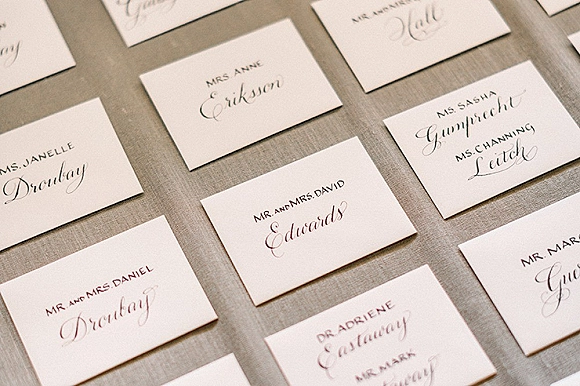 MRS. ANNE
Eriksson
MR. AND MRS.
Hall
MS. JANELLE
Droubay
MR. AND MRS. DAVID
Edwards
MS. SASHA
Gumprecht
MS. CHANNING
Leitch
MR. AND MRS. DANIEL
Droubay
DR. ADRIENE
Eastaway
MR. MARK
Eastaway
MR. MARC